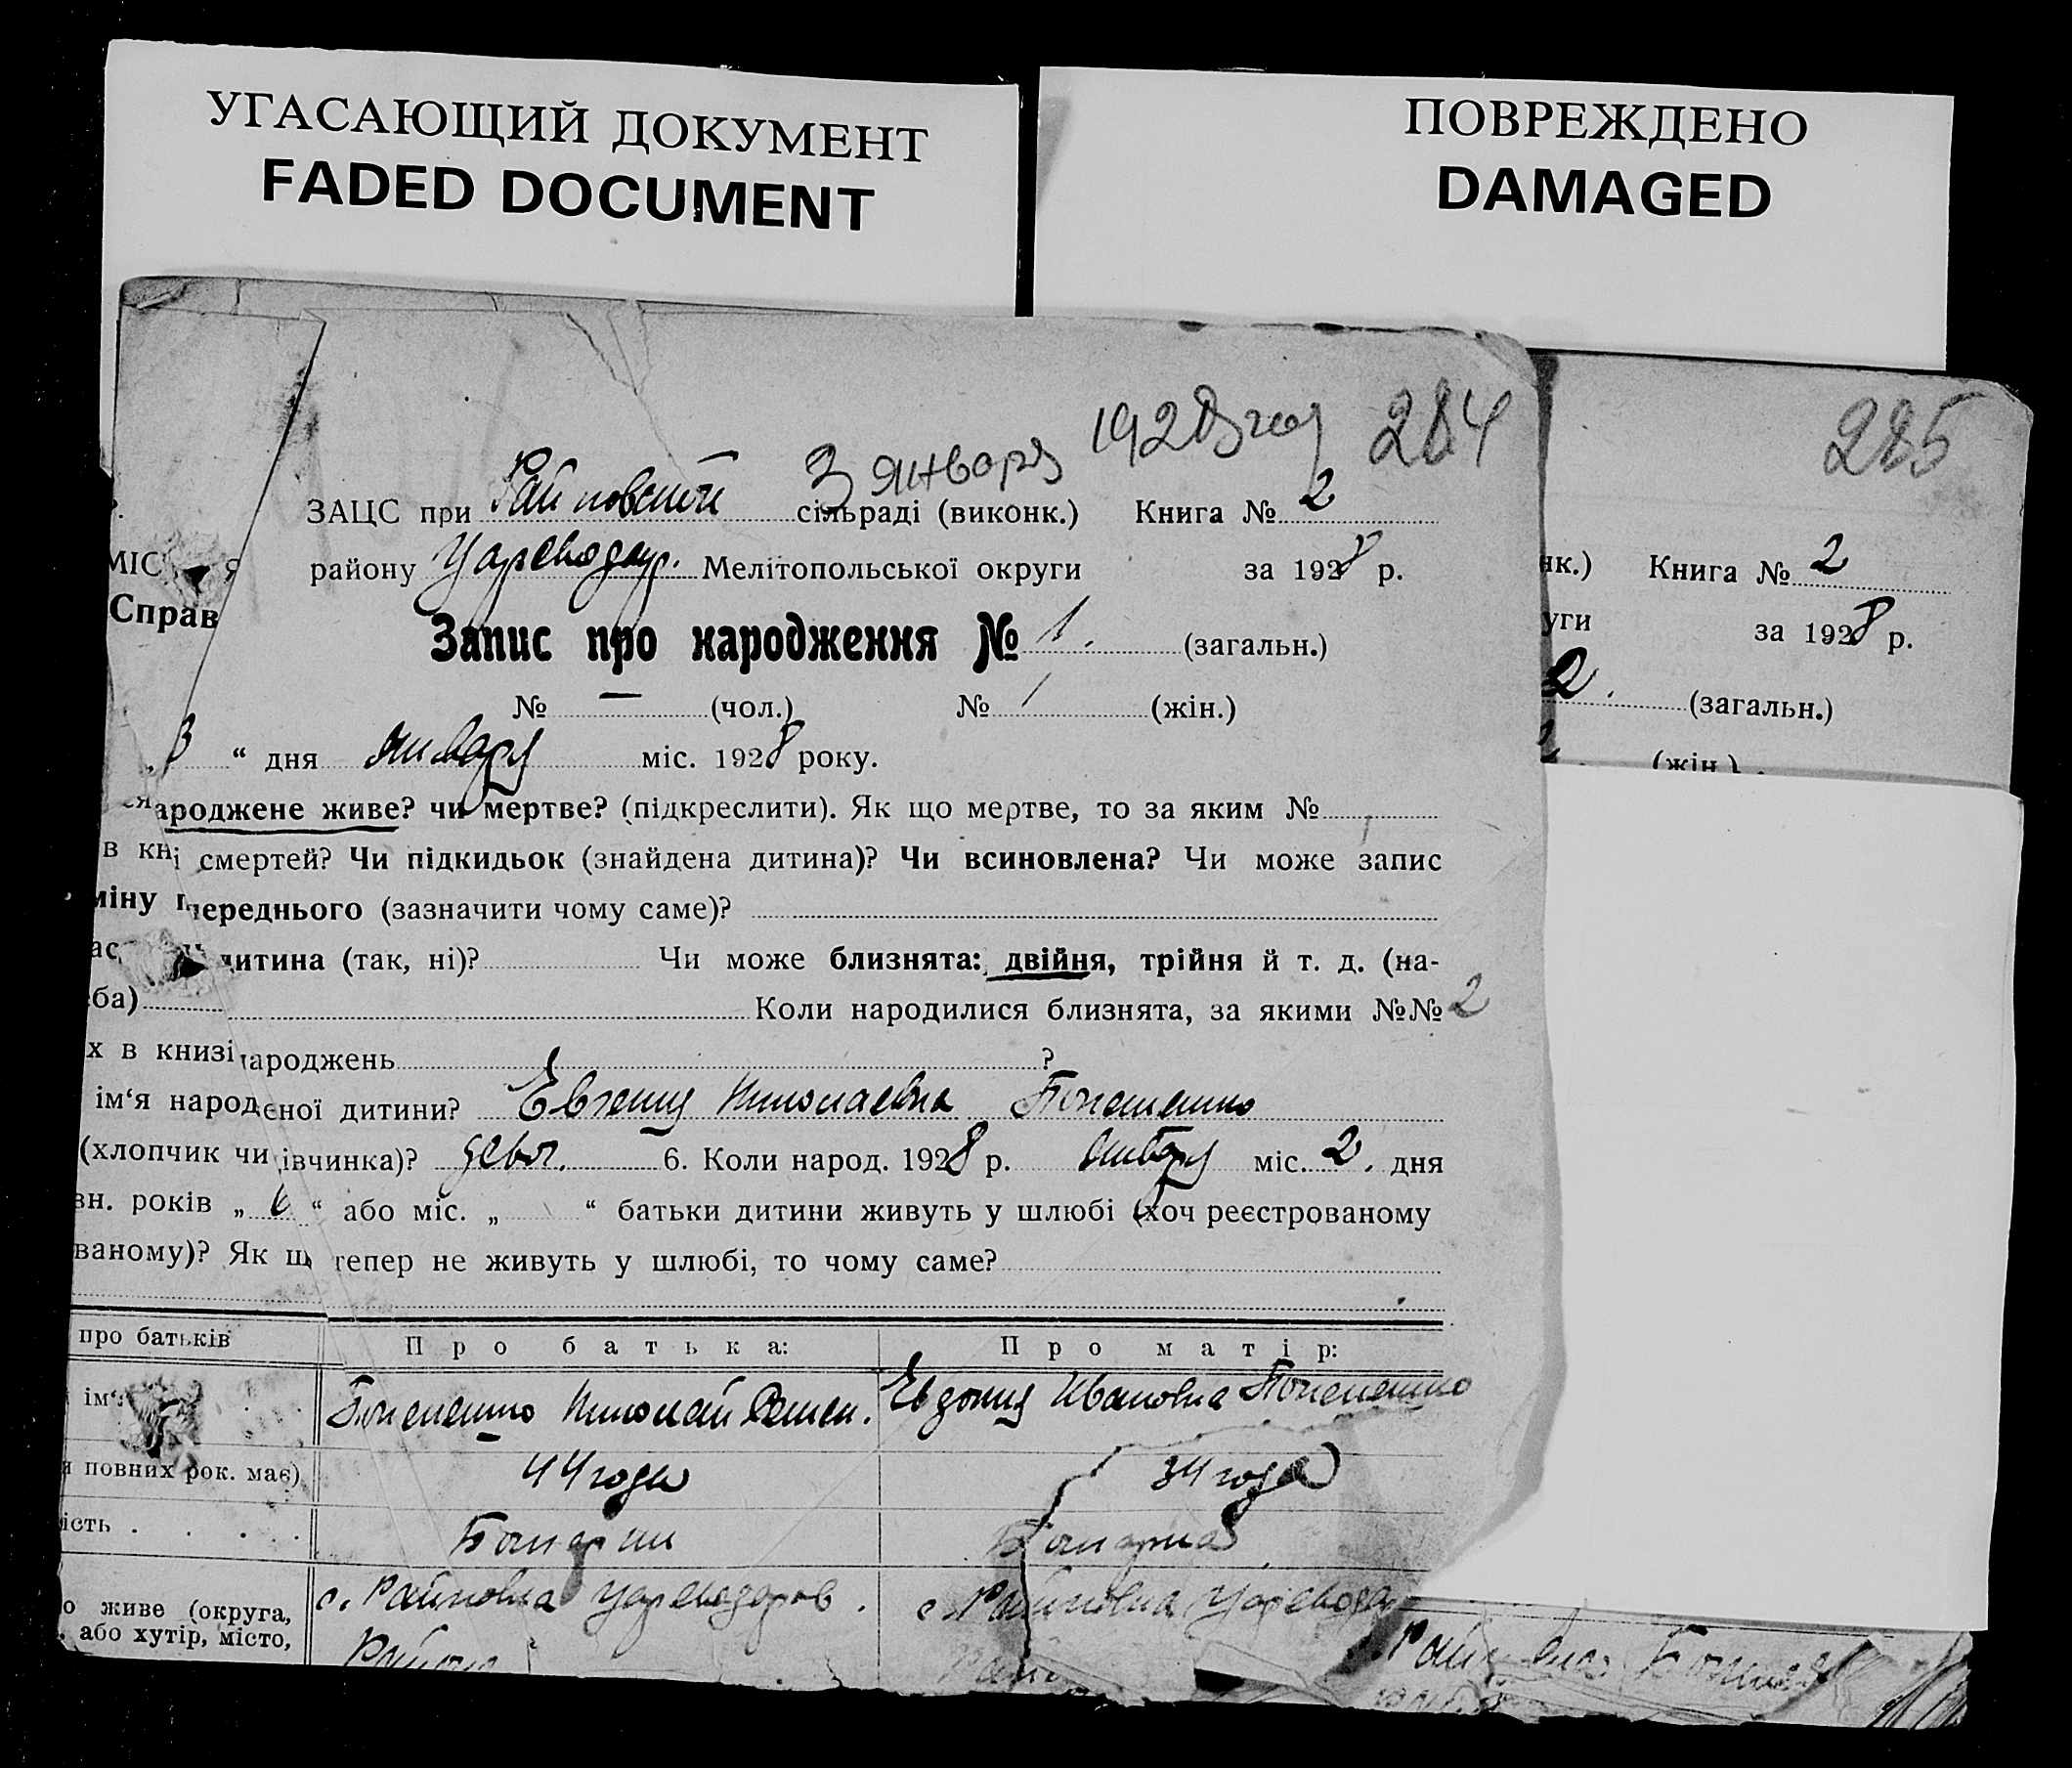 УГАСАЮЩИЙ ДОКУМЕНТ
FADED DOCUMENT
ПОВРЕЖДЕНО
DAMAGED
3 января 1928 год 284
285
ЗАЦС при Райновской сільраді (виконк.) Книга № 2
району Цареводар. Мелітопольської округи за 1928 р.
Справ
Запис про народження № 1. (загальн.)
№ — (чол.) № 1 (жін.)
„ 3 “ дня января міс. 1928 року.
ароджене живе? чи мертве? (підкреслити). Як що мертве, то за яким №
в кні смертей? Чи підкидьок (знайдена дитина)? Чи всиновлена? Чи може запис
міну попереднього (зазначити чому саме)?
дитина (так, ні)? Чи може близнята: двійня, трійня й т. д. (на-
еба) Коли народилися близнята, за якими №№ 2
х в книзі народжень ?
ім‘я народженої дитини? Евгения Николаевна
(хлопчик чи дівчинка)? девоч. 6. Коли народ. 1928 р. января міс. 2. дня
вн. років „ 6 “ або міс. „ “ батьки дитини живуть у шлюбі (хоч реєстрованому
ваному)? Як що тепер не живуть у шлюбі, то чому саме?
про батьків Про батька: Про матір:
ім‘я Николай Евдокия Ивановна
повних рок. має) 44 года 34 года
ість . . . . Болгарин Болгарка
о живе (округа, с. Райновка Цареводаров. с. Райновка Цареводар
або хутір, місто, Района
нк.) Книга № 2
уги за 1928 р.
2. (загальн.)
(жін.)